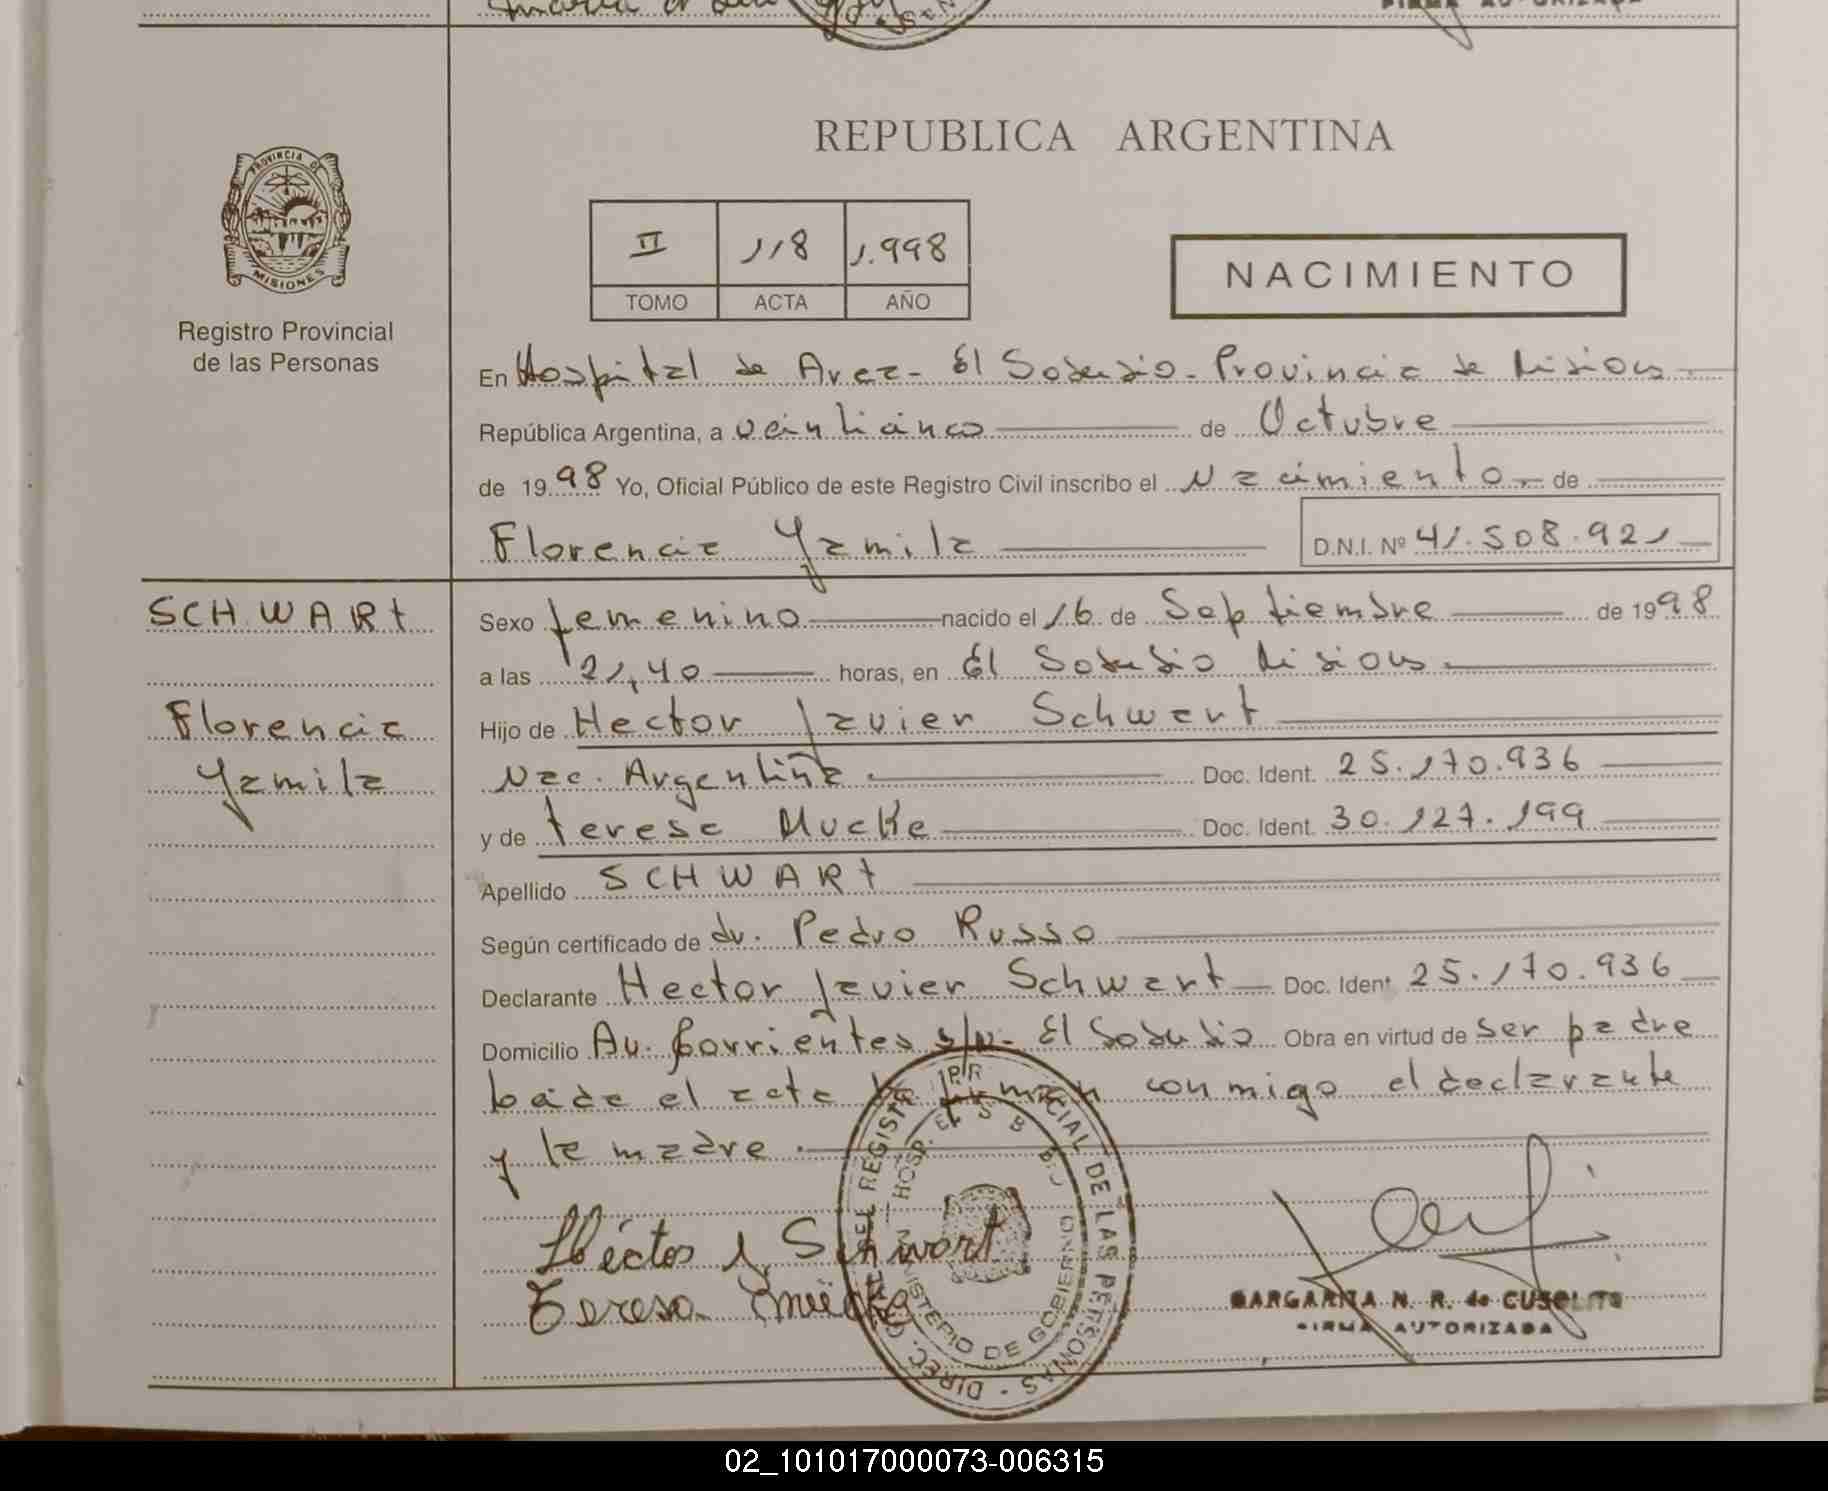 REPUBLICA ARGENTINA
PROVINCIA DE
MISIONES
Registro Provincial
de las Personas
II 118 1.998
TOMO ACTA AÑO
NACIMIENTO
En Hospital de Area - El Soberbio - Provincia de Misiones
República Argentina, a veinticinco de Octubre
de 1998 Yo, Oficial Público de este Registro Civil inscribo el Nacimiento de
Florencia Yamila D.N.I. Nº 41.508.921
SCHWARt
Florencia
Yamila
Sexo femenino nacido el 16 de Septiembre de 1998
a las 21,40 horas, en El Soberbio Misiones
Hijo de Hector Javier Schwart
Nac. Argentina Doc. Ident. 25.170.936
y de teresa Mucke Doc. Ident. 30.127.199
Apellido SCHWARt
Según certificado de dr. Pedro Russo
Declarante Hector Javier Schwart Doc. Ident. 25.170.936
Domicilio Av. Corrientes s/n - El Soberbio Obra en virtud de ser padre
leida el acta la firman conmigo el declarante
y la madre.
Héctor J. Schwart
Teresa Mücke
DIREC. GRAL. DEL REGISTRO PROVINCIAL DE LAS PERSONAS
HOSP.
MINISTERIO DE GOBIERNO
MARGARITA N. R. de
FIRMA AUTORIZADA
02_101017000073-006315